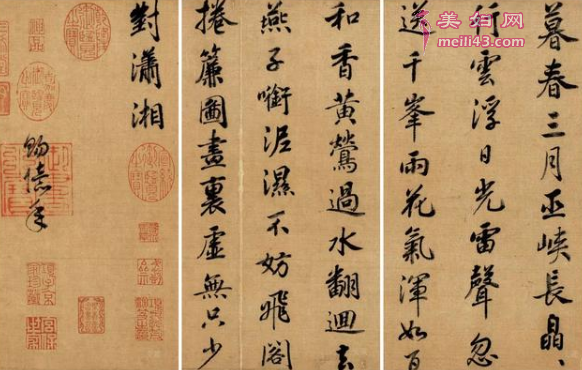 美妇网
meili43.com
暮春三月巫峽長皛、
行雲浮日光雷聲忽
送千峯雨花氣渾如百
和香黃鶯過水翻迴去
燕子銜泥濕不妨飛閣
捲簾圖畫裏虛無只少
對瀟湘
賜億年